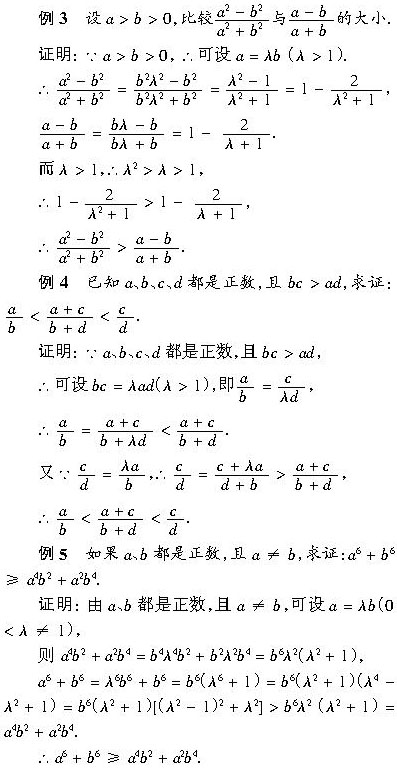 例 3 设 a > b > 0, 比较 (a² - b²)/(a² + b²) 与 (a - b)/(a + b) 的大小.
证明: ∵ a > b > 0, ∴ 可设 a = λb (λ > 1).
∴ (a² - b²)/(a² + b²) = (b²λ² - b²)/(b²λ² + b²) = (λ² - 1)/(λ² + 1) = 1 - 2/(λ² + 1),
(a - b)/(a + b) = (bλ - b)/(bλ + b) = 1 - 2/(λ + 1).
而 λ > 1, ∴ λ² > λ > 1,
∴ 1 - 2/(λ² + 1) > 1 - 2/(λ + 1),
∴ (a² - b²)/(a² + b²) > (a - b)/(a + b).
例 4 已知 a、b、c、d 都是正数, 且 bc > ad, 求证:
a/b < (a + c)/(b + d) < c/d.
证明: ∵ a、b、c、d 都是正数, 且 bc > ad,
∴ 可设 bc = λad(λ > 1), 即 a/b = c/(λd),
∴ a/b = (a + c)/(b + λd) < (a + c)/(b + d).
又 ∵ c/d = λa/b, ∴ c/d = (c + λa)/(d + b) > (a + c)/(b + d),
∴ a/b < (a + c)/(b + d) < c/d.
例 5 如果 a、b 都是正数, 且 a ≠ b, 求证: a⁶ + b⁶
≥ a⁴b² + a²b⁴.
证明: 由 a、b 都是正数, 且 a ≠ b, 可设 a = λb(0
< λ ≠ 1),
则 a⁴b² + a²b⁴ = b⁴λ⁴b² + b²λ²b⁴ = b⁶λ²(λ² + 1),
a⁶ + b⁶ = λ⁶b⁶ + b⁶ = b⁶(λ⁶ + 1) = b⁶(λ² + 1)(λ⁴ -
λ² + 1) = b⁶(λ² + 1)[(λ² - 1)² + λ²] > b⁶λ² (λ² + 1) =
a⁴b² + a²b⁴.
∴ a⁶ + b⁶ ≥ a⁴b² + a²b⁴.